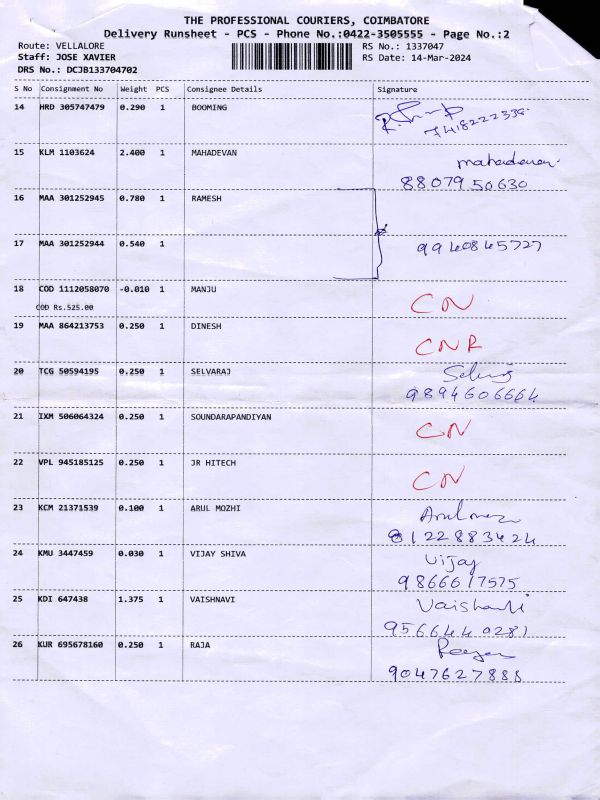 THE PROFESSIONAL COURIERS, COIMBATORE
Delivery Runsheet - PCS - Phone No.:0422-3505555 - Page No.:2
Route: VELLALORE RS No.: 1337047
Staff: JOSE XAVIER RS Date: 14-Mar-2024
DRS No.: DCJB133704702
S No Consignment No Weight PCS Consignee Details Signature
14 HRD 305747479 0.290 1 BOOMING
15 KLM 1103624 2.400 1 MAHADEVAN mahadevan
88079 50630
16 MAA 301252945 0.780 1 RAMESH
17 MAA 301252944 0.540 1 9940845727
18 COD 1112058070 -0.010 1 MANJU CN
COD Rs.525.00
19 MAA 864213753 0.250 1 DINESH CNR
20 TCG 50594195 0.250 1 SELVARAJ
9894606664
21 IXM 506064324 0.250 1 SOUNDARAPANDIYAN CN
22 VPL 945185125 0.250 1 JR HITECH CN
23 KCM 21371539 0.100 1 ARUL MOZHI
8122883424
24 KMU 3447459 0.030 1 VIJAY SHIVA Vijay
9866617575
25 KDI 647438 1.375 1 VAISHNAVI Vaishnavi
9566440281
26 KUR 695678160 0.250 1 RAJA
9047627888